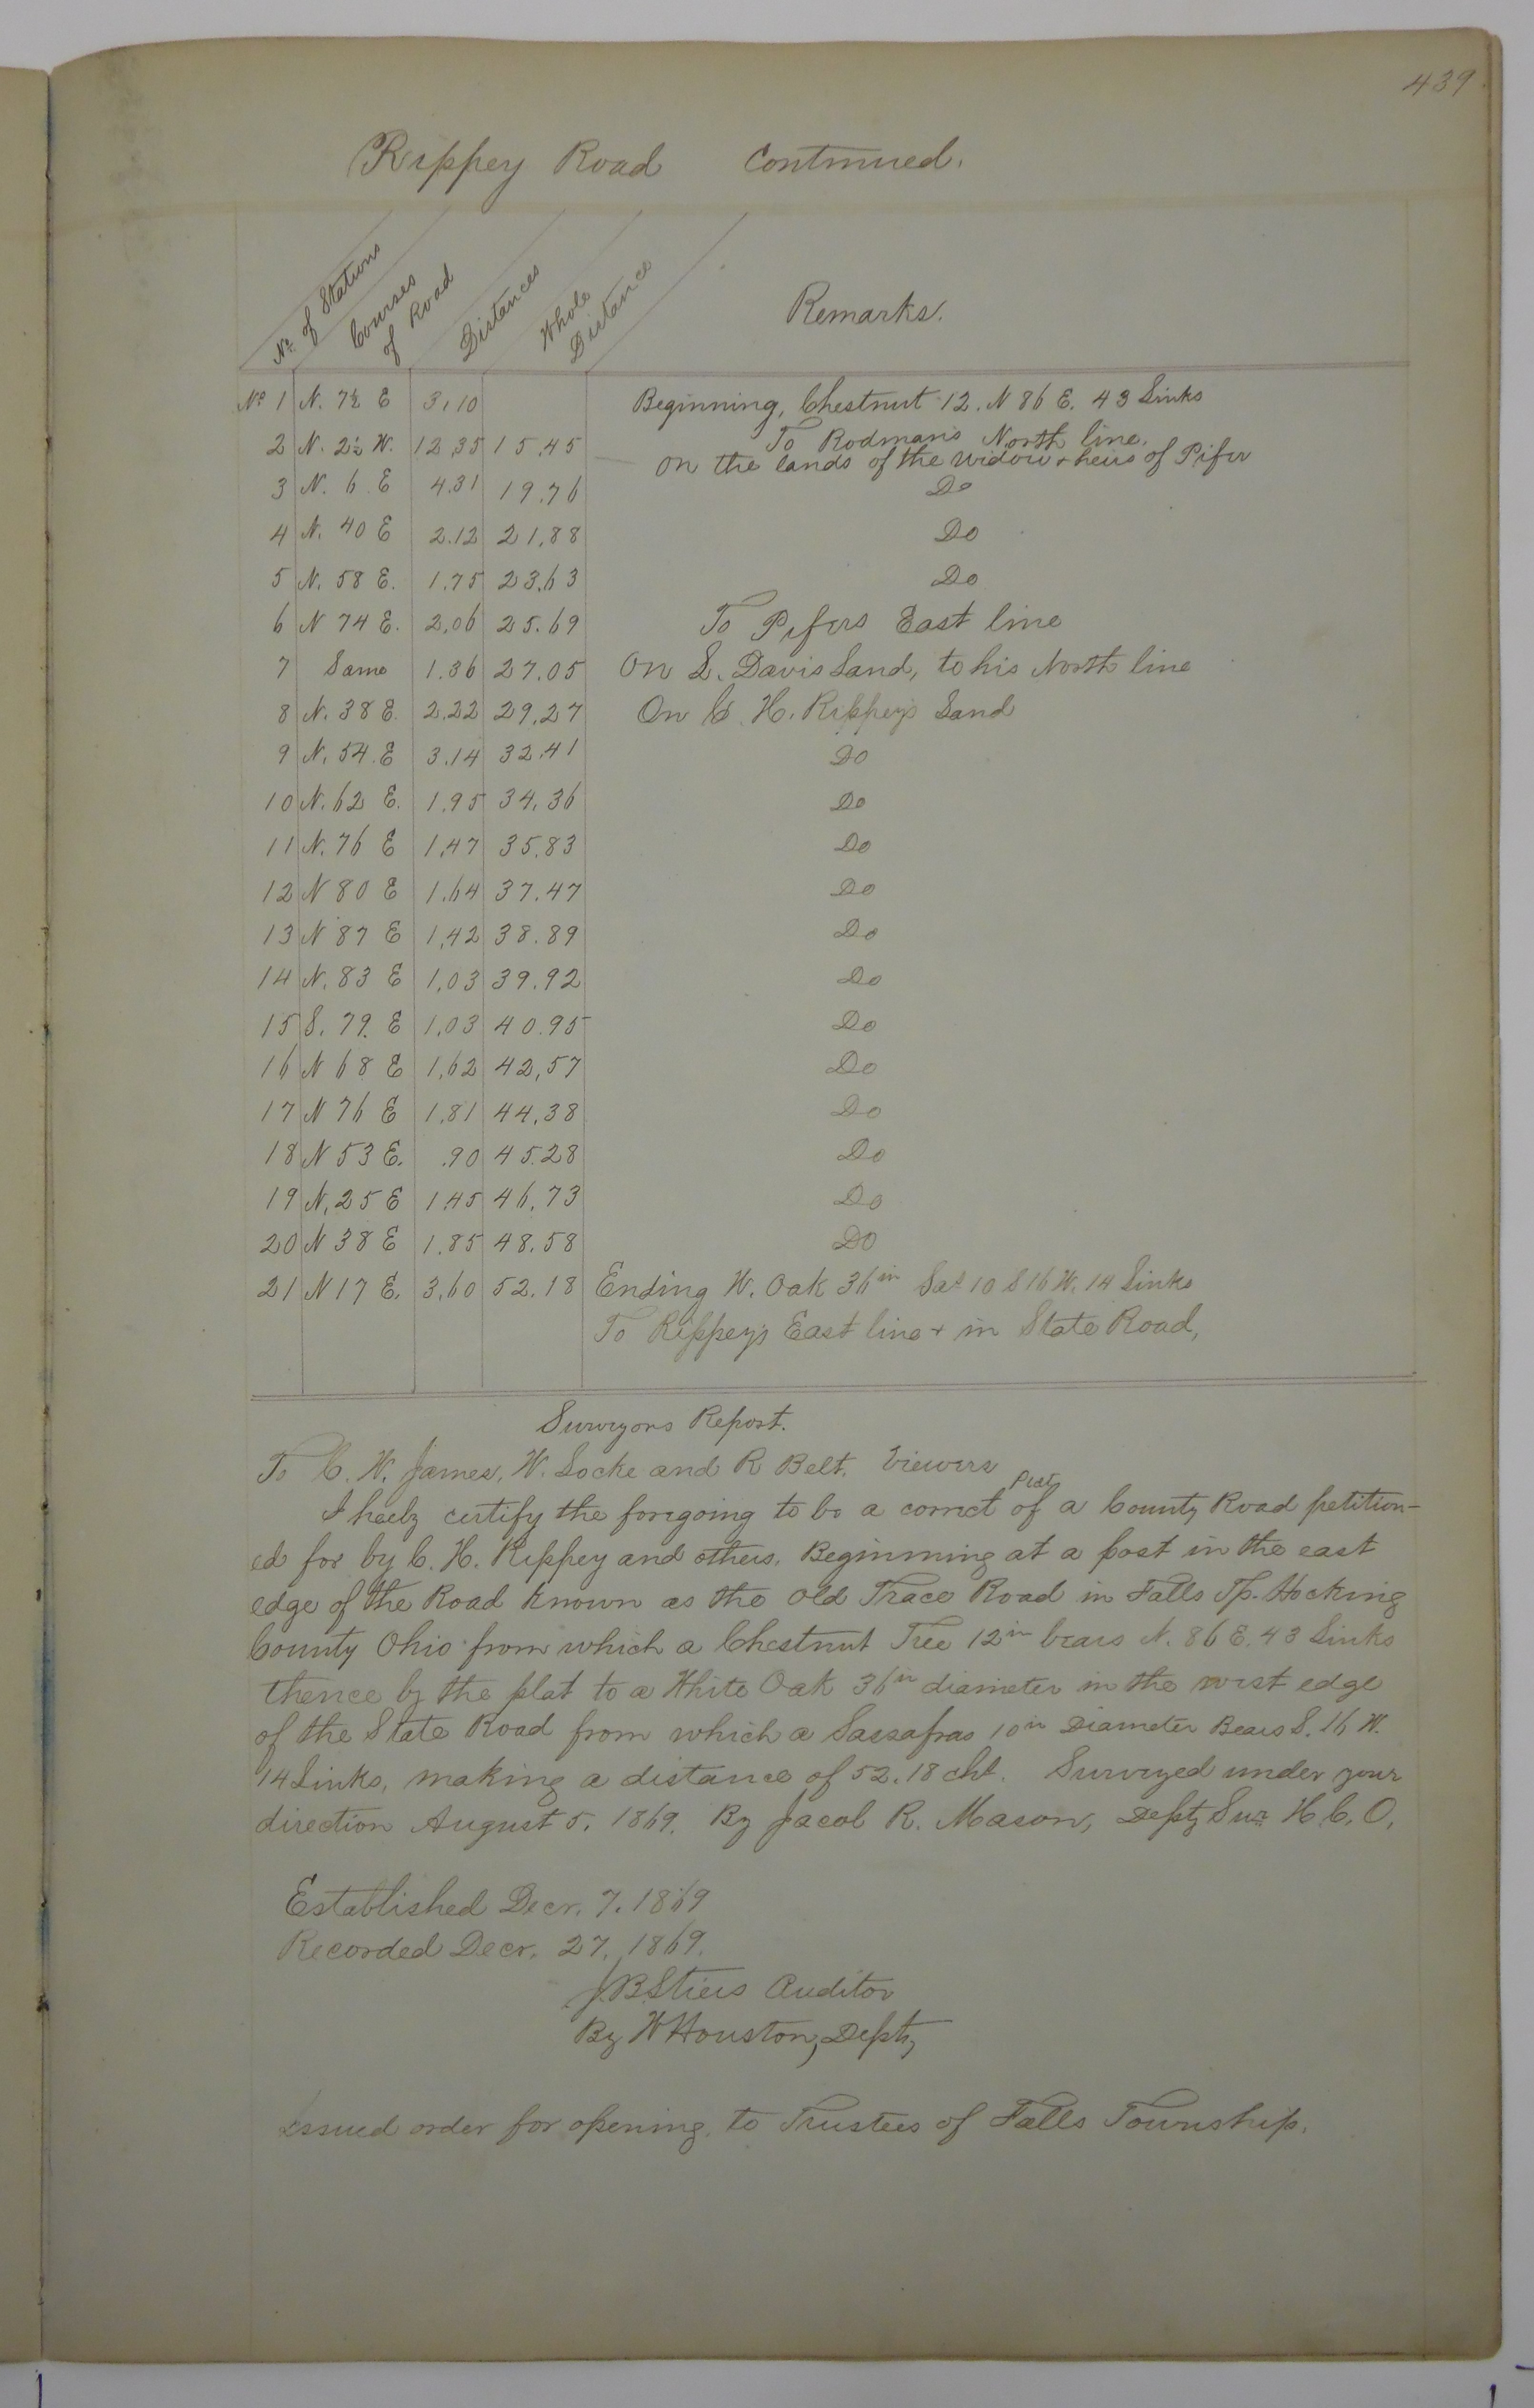 439
Rippey Road Continued.
No. of Stations Courses of Road Distances Whole Distance Remarks.
No 1 N. 7½ E 3.10 Beginning, Chestnut 12. N 86 E. 43 Links
2 N. 2½ W. 12.35 15.45 To Rodman's North line.
on the lands of the widow & heirs of Pifer
3 N. 6 E 4.31 19.76 Do
4 N. 40 E 2.12 21.88 Do
5 N. 58 E. 1.75 23.63 Do
6 N 74 E. 2.06 25.69 To Pifers East line
7 Same 1.36 27.05 On L. Davis Land, to his North line
8 N. 38 E. 2.22 29.27 On C. H. Rippey's Land
9 N. 54. E 3.14 32.41 Do
10 N. 62 E. 1.95 34.36 Do
11 N. 76 E 1.47 35.83 Do
12 N 80 E 1.64 37.47 Do
13 N 87 E 1.42 38.89 Do
14 N. 83 E 1.03 39.92 Do
15 S. 79. E 1.03 40.95 Do
16 N 68 E 1.62 42.57 Do
17 N 76 E 1.81 44.38 Do
18 N 53 E. .90 45.28 Do
19 N. 25 E 1.45 46.73 Do
20 N 38 E 1.85 48.58 Do
21 N 17 E. 3.60 52.18 Ending W. Oak 36in Sas 10 S 16 W. 14 Links
To Rippey's East line & in State Road,
Surveyors Report.
To C. W. James, W. Locke and R Belt. Viewers
I heeby certify the foregoing to be a correct Plat of a County Road petition-
ed for by C. H. Rippey and others. Beginning at a post in the east
edge of the Road known as the Old Trace Road in Falls Tp. Hocking
County Ohio from which a Chestnut Tree 12in bears N. 86 E. 43 Links
thence by the plat to a White Oak 36in diameter in the west edge
of the State Road from which a Sassafras 10in Diameter Bears S. 16 W.
14 Links, making a distance of 52.18 chs. Surveyed under your
direction August 5. 1869. By Jacob R. Mason, Depty Sur H. C. O.
Established Decr. 7. 1869
Recorded Decr. 27, 1869.
J B Stiers Auditor
By W Houston, Depty
Issued order for opening to Trustees of Falls Township.